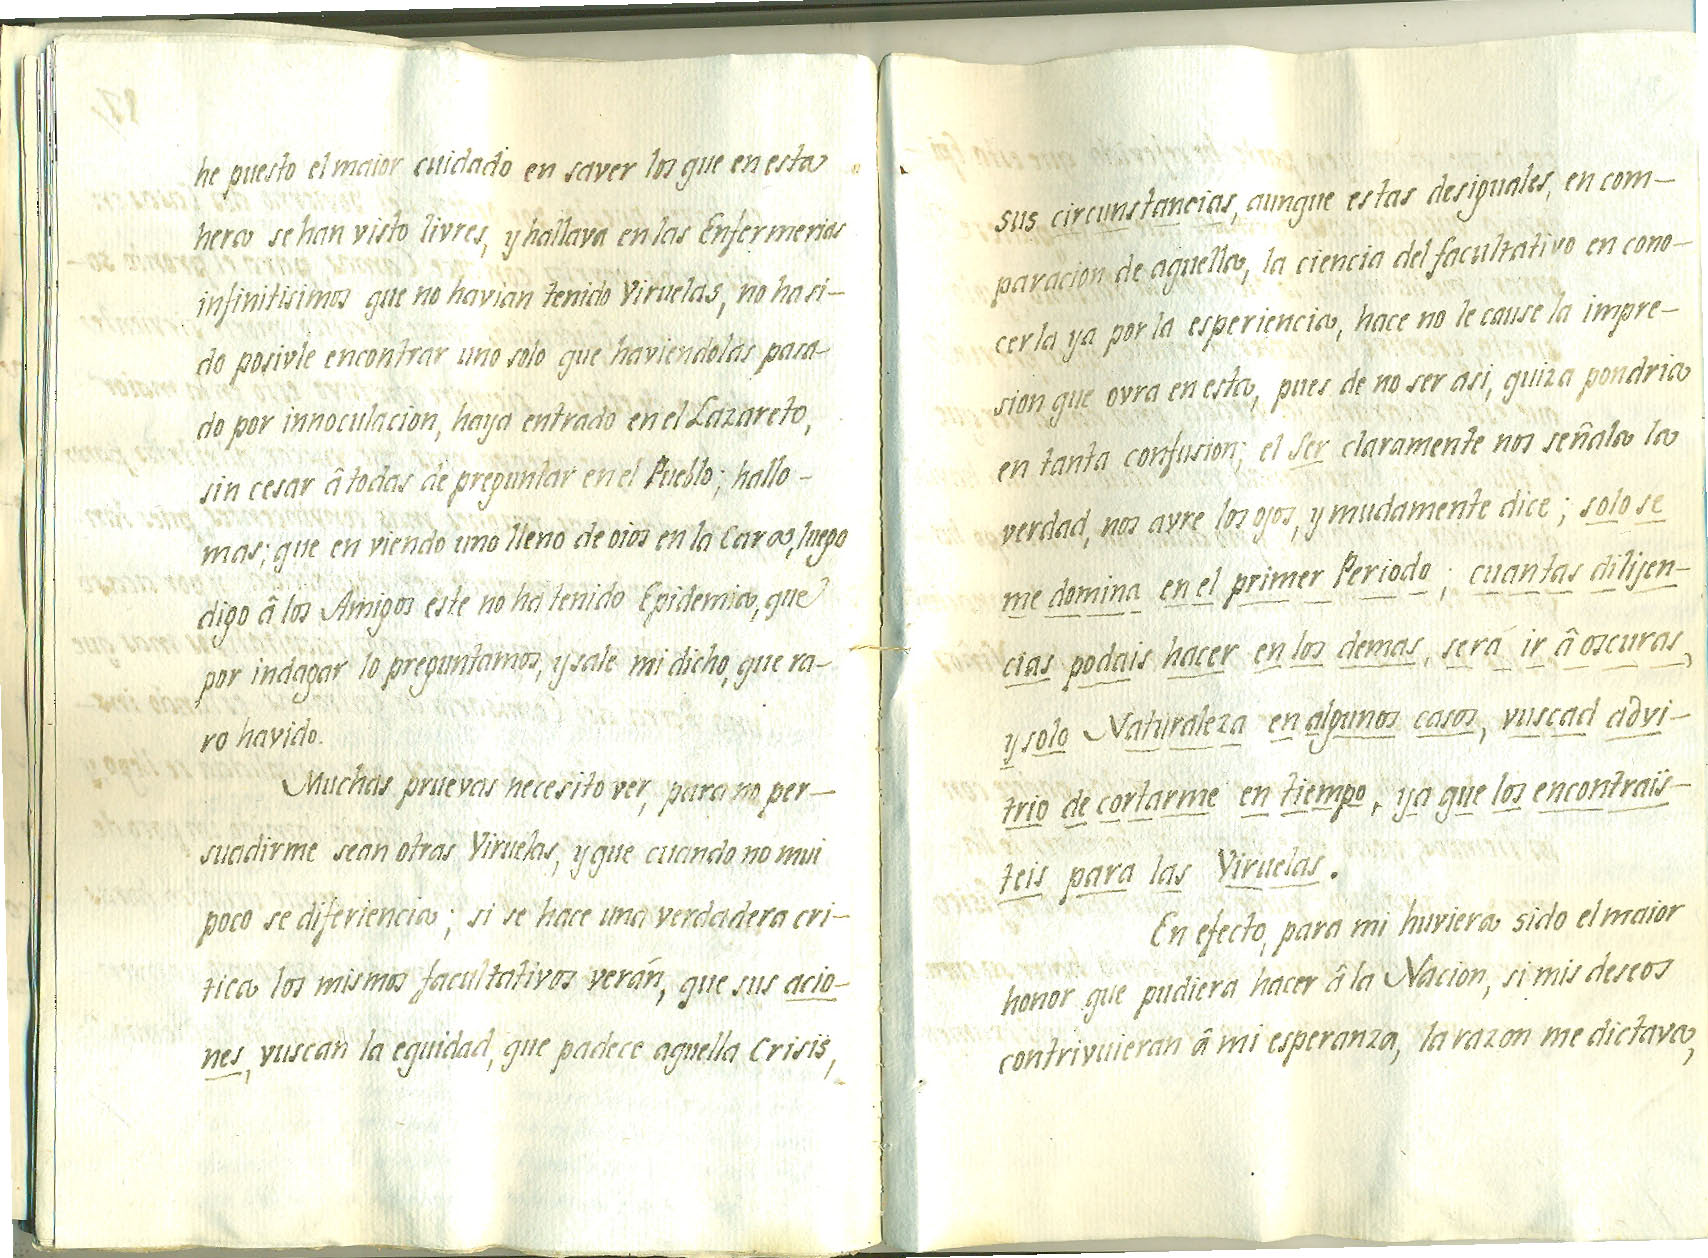 he puesto el maior cuidado en saver los que en esta
hera se han visto livres, y hallava en las Enfermerias
infinitisimos que no havian tenido Viruelas, no ha si-
do posivle encontrar uno solo que haviendolas pasa-
do por innoculacion, haya entrado en el Lazareto,
sin cesar â todas de preguntar en el Pueblo; hallo-
mas; que en viendo uno lleno de oios en la Cara, luego
digo â los Amigos este no ha tenido Epidemia, que
por indagar lo preguntamos, y sale mi dicho, que ra-
ro havido.
Muchas pruevas necesito ver, para no per-
suadirme sean otras Viruelas, y que cuando no mui
poco se diferiencia; si se hace una verdadera cri-
tica los mismos facultativos verán, que sus acio-
nes, vuscan la equidad, que padece aquella Crisis,
sus circunstancias, aunque estas desiguales, en com-
paracion de aquella, la ciencia del facultativo en cono-
cerla ya por la esperiencia, hace no le cause la impre-
sion que ovra en esta, pues de no ser asi, quiza pondria
en tanta confusion; el Ser claramente nos señala la
verdad, nos avre los ojos, y mudamente dice; solo se
me domina en el primer Periodo; cuantas dilijen-
cias podais hacer en los demas, será ir â oscuras,
y solo Naturaleza en algunos casos, vuscad advi-
trio de cortarme en tiempo, ya que los encontrais-
teis para las Viruelas.
En efecto, para mi huviera sido el maior
honor que pudiera hacer â la Nacion, si mis deseos
contrivuieran â mi esperanza, la razon me dictava,